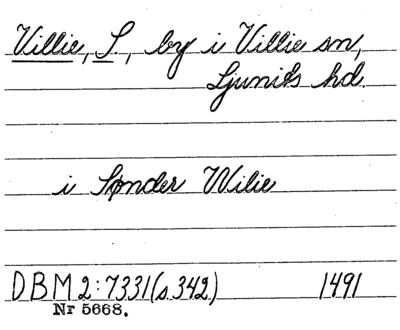 Villie, S., by i Villie sn,
Ljunits hd.
i Sønder Wilie
DBM 2:7331(s.342) 1491
Nr 5668.